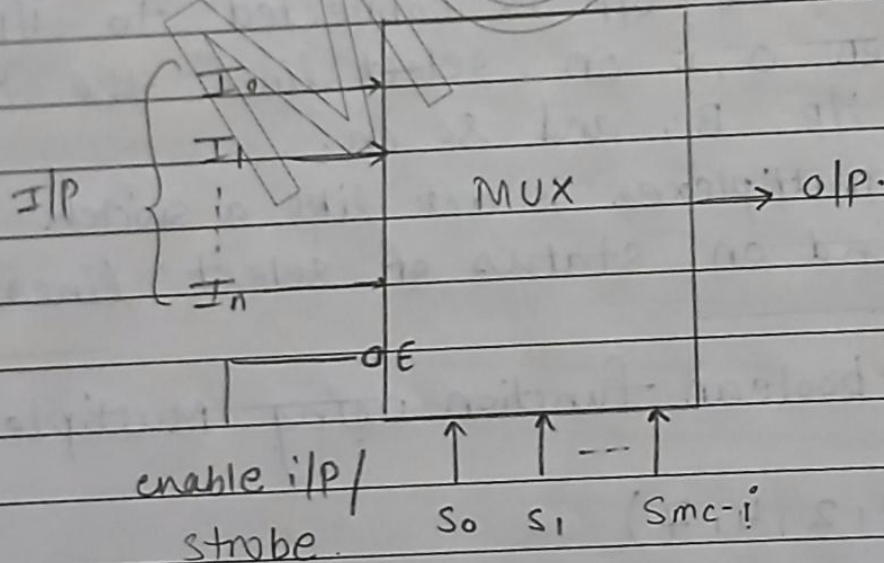 I0
I1
I/P
MUX
O/P.
In
E
enable i/p/
strobe.
S0 S1 --- Smc-i